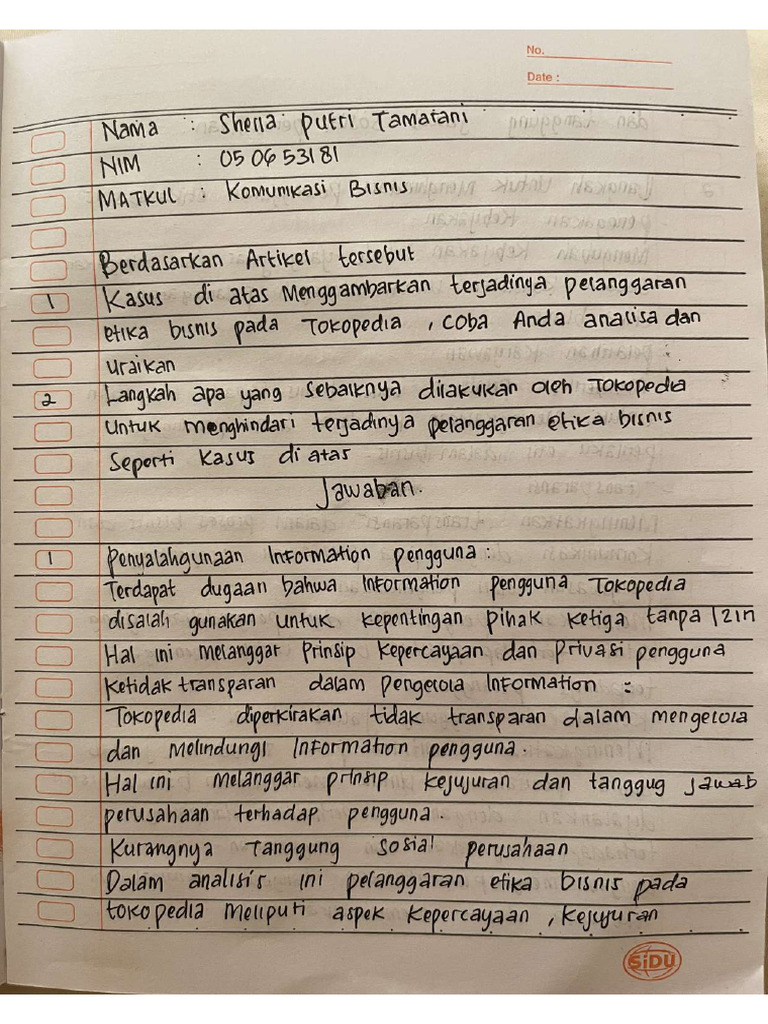 No.
Date :
Nama : Shella Putri Tamatani
NIM : 050653181
MATKUL : Komunikasi Bisnis
Berdasarkan Artikel tersebut
1 Kasus di atas Menggambarkan terjadinya pelanggaran
etika bisnis pada Tokopedia , coba Anda analisa dan
uraikan
2 Langkah apa yang sebaiknya dilakukan oleh Tokopedia
untuk menghindari terjadinya pelanggaran etika bisnis
seperti kasus di atas
Jawaban.
1 Penyalahgunaan Information pengguna :
Terdapat dugaan bahwa Information pengguna Tokopedia
disalah gunakan untuk kepentingan pihak ketiga tanpa Izin
Hal ini melanggar prinsip kepercayaan dan Privasi pengguna
Ketidak transparan dalam pengelola Information :
Tokopedia diperkirakan tidak transparan dalam mengelola
dan Melindungi Information pengguna.
Hal ini melanggar prinsip kejujuran dan tanggug jawab
perusahaan terhadap pengguna.
Kurangnya Tanggung sosial perusahaan
Dalam analisis ini pelanggaran etika bisnis pada
tokopedia meliputi aspek kepercayaan , kejujuran
SiDU